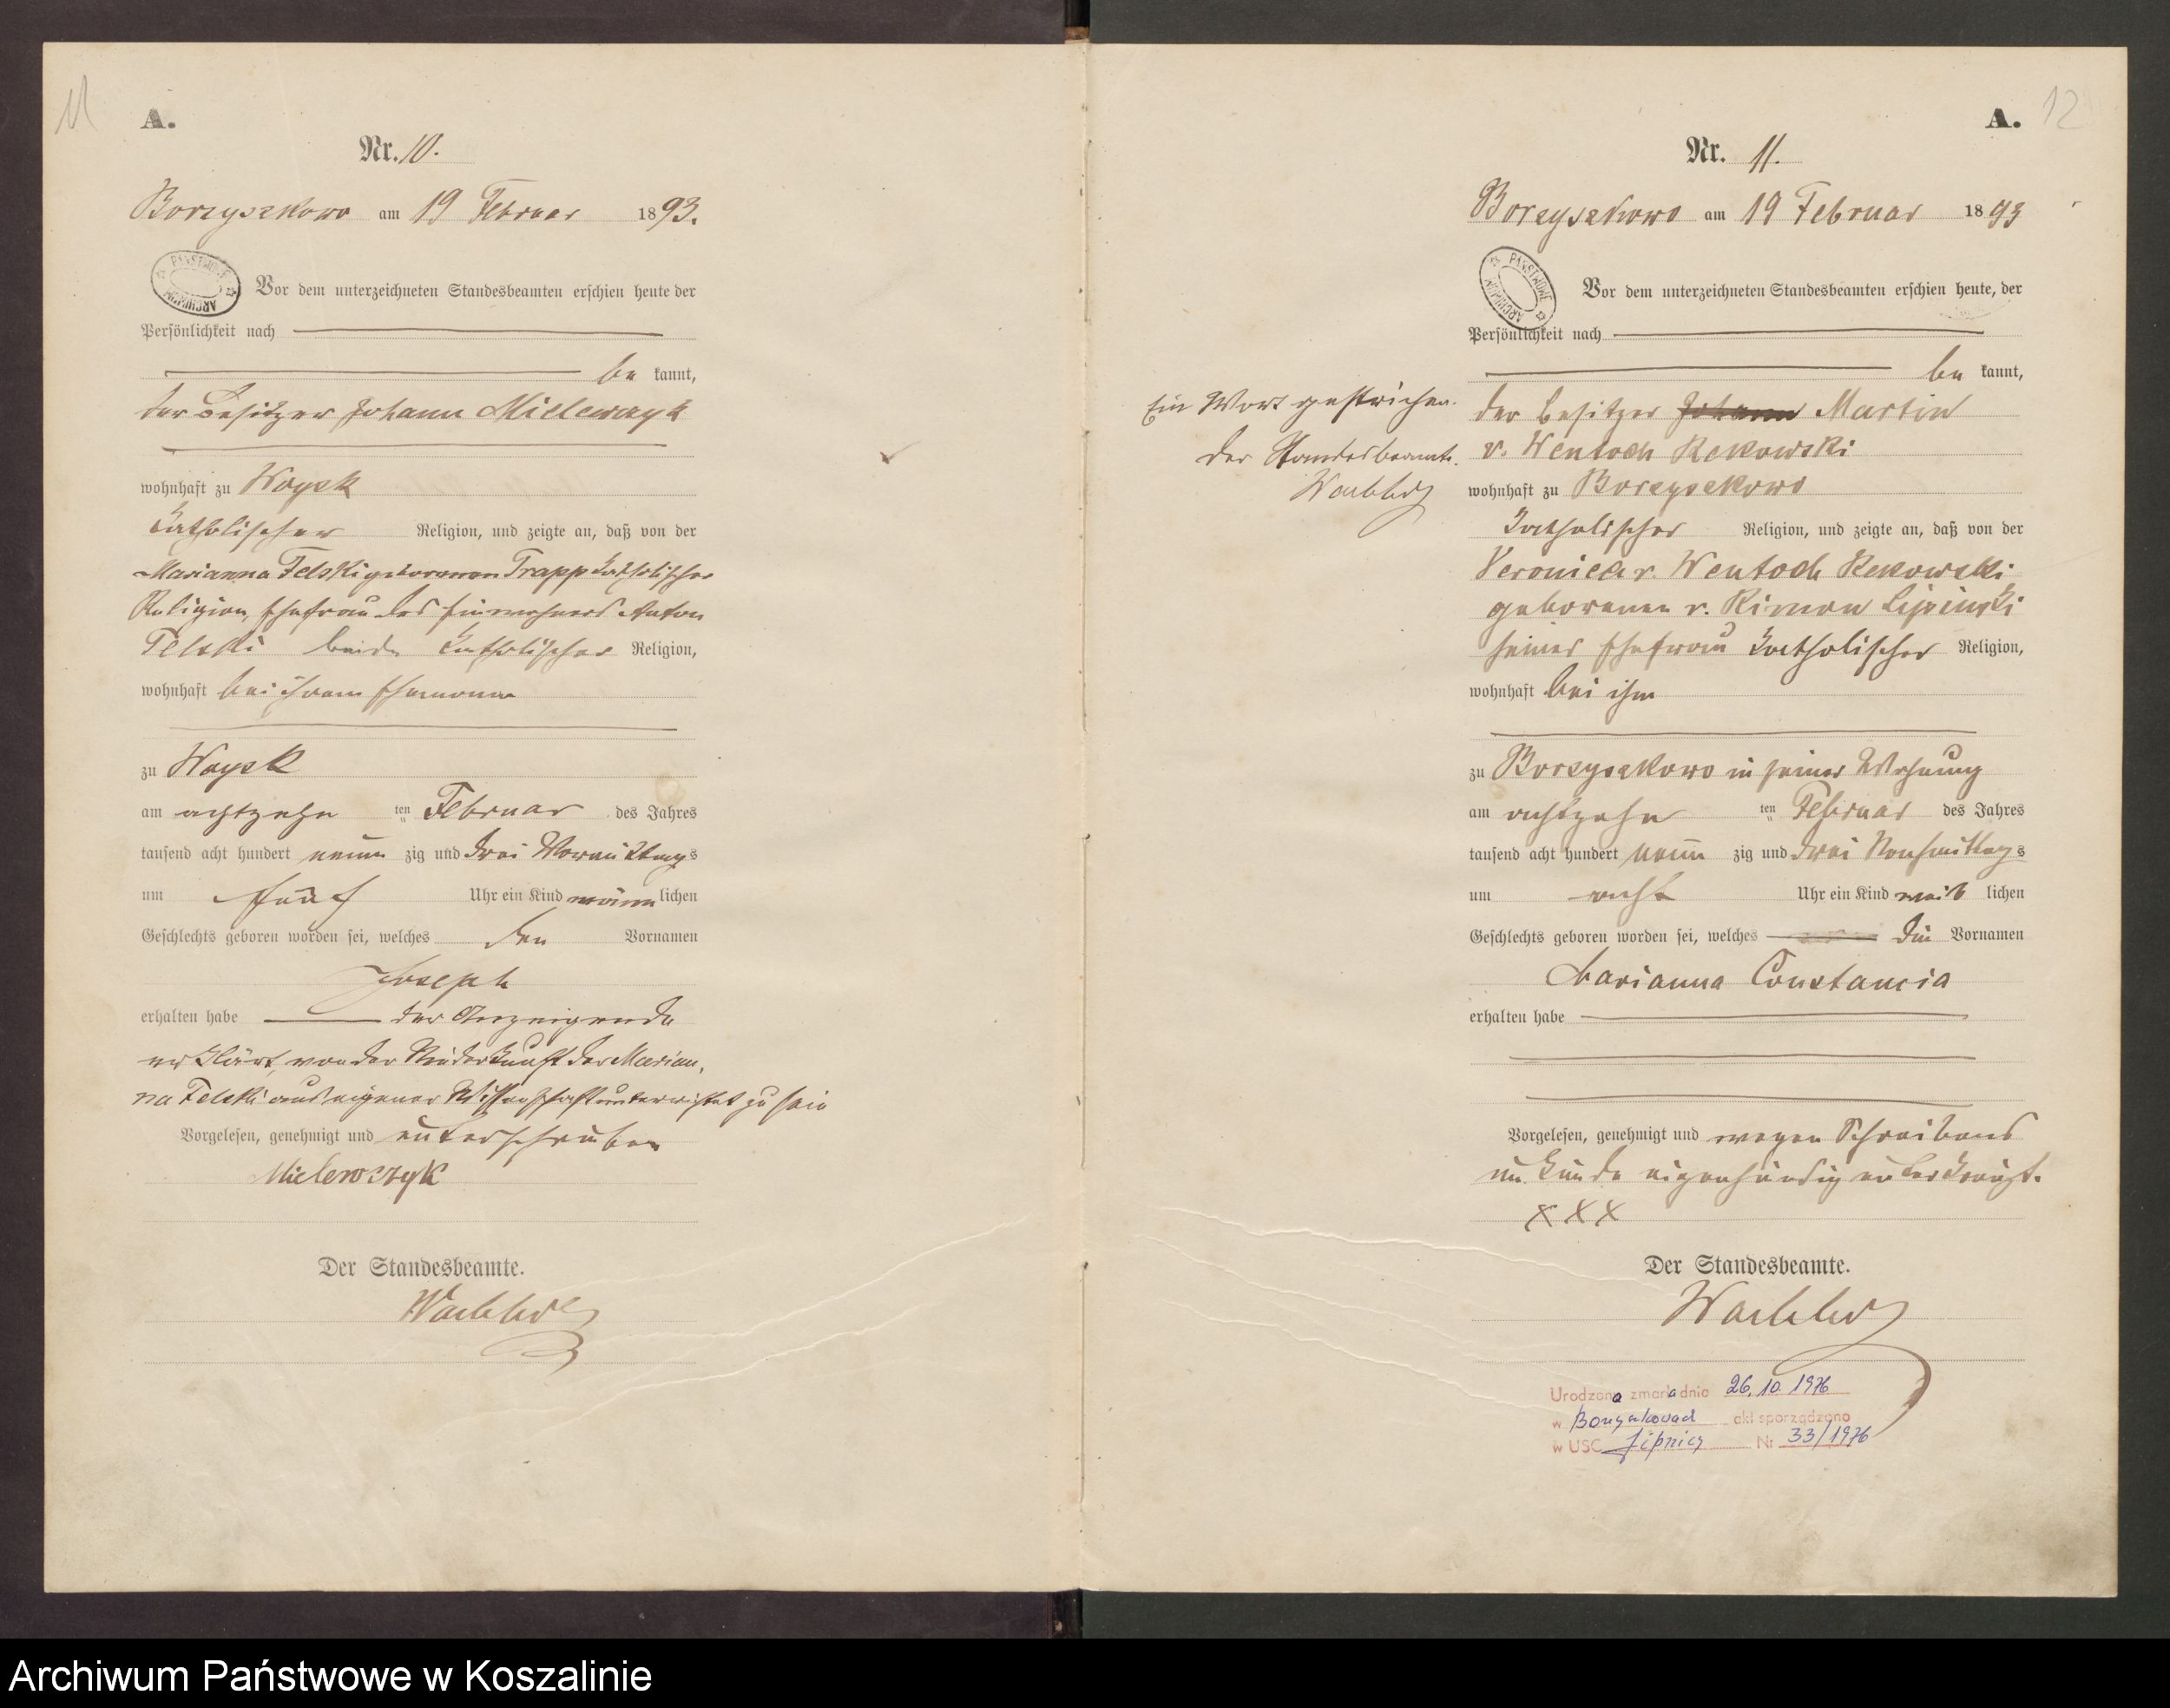 11
A.
Nr. 10.
Borzyszkowo am 19 Februar 1893.
PAŃSTWOWE ARCHIWUM
Vor dem unterzeichneten Standesbeamten erschien heute der
Persönlichkeit nach
be kannt,
der Besitzer Johann Mielewczyk
wohnhaft zu Woysk
katholischer Religion, und zeigte an, daß von der
Marianna Felski geborenen Trapp katholischer
Religion, Ehefrau des Einwohners Anton
Felski beide katholischer Religion,
wohnhaft bei ihrem Ehemanne
zu Woysk
am achtzehn ten Februar des Jahres
tausend acht hundert neun zig und drei Vormittags
um fünf Uhr ein Kind männ lichen
Geschlechts geboren worden sei, welches den Vornamen
Joseph
erhalten habe der Anzeigende
erklärt, von der Niederkunft der Marian,
na Felski aus eigener Wissenschaft unterrichtet zu sein
Vorgelesen, genehmigt und unterschrieben
Mielewczyk
Der Standesbeamte.
12
A.
Nr. 11.
Borzyszkowo am 19 Februar 1893
PAŃSTWOWE ARCHIWUM
Vor dem unterzeichneten Standesbeamten erschien heute, der
Persönlichkeit nach
be kannt,
der Besitzer Johann Martin
v. Wentoch Rekowski
Ein Wort gestrichen.
Der Standesbeamte.
wohnhaft zu Borzyszkowo
katholischer Religion, und zeigte an, daß von der
Veronica v. Wentoch Rekowski
geborenen v. Kimon Lipinski
seiner Ehefrau katholischer Religion,
wohnhaft bei ihm
zu Borzyszkowo in seiner Wohnung
am achtzehn ten Februar des Jahres
tausend acht hundert neun zig und drei Nachmittags
um acht Uhr ein Kind weib lichen
Geschlechts geboren worden sei, welches die Vornamen
Marianna Constancia
erhalten habe
Vorgelesen, genehmigt und wegen Schreibens
unkunde eigenhändig unterkreuzt.
XXX
Der Standesbeamte.
Urodzona zmarła dnia 26.10.1976
w akt sporządzono
w USC Lipnicy Nr 33/1976
Archiwum Państwowe w Koszalinie